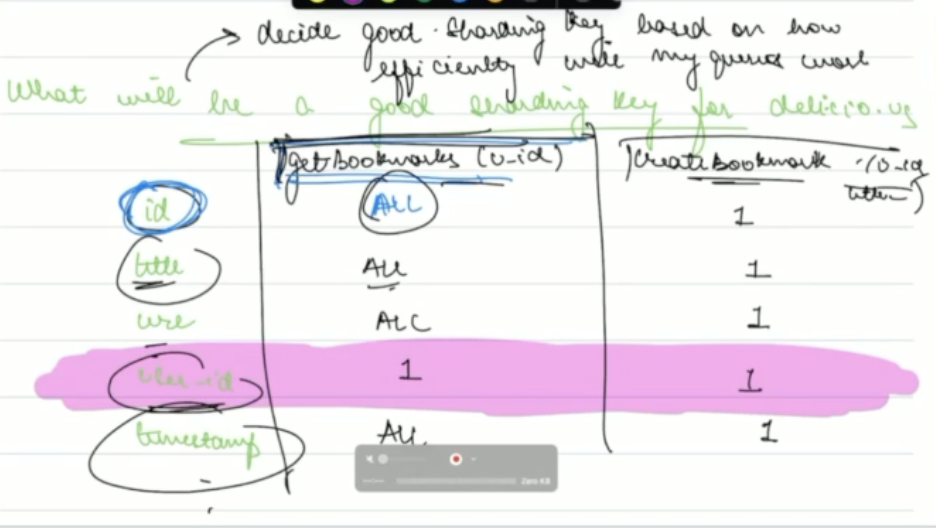 decide good sharding key based on how
efficiently
my
What will be a good sharding key for delicio.us
getBookmarks (u_id) createBookmark (u_id
id ALL 1
title ALL 1
ALL 1
user_id 1 1
timestamp ALL 1
Zero KB